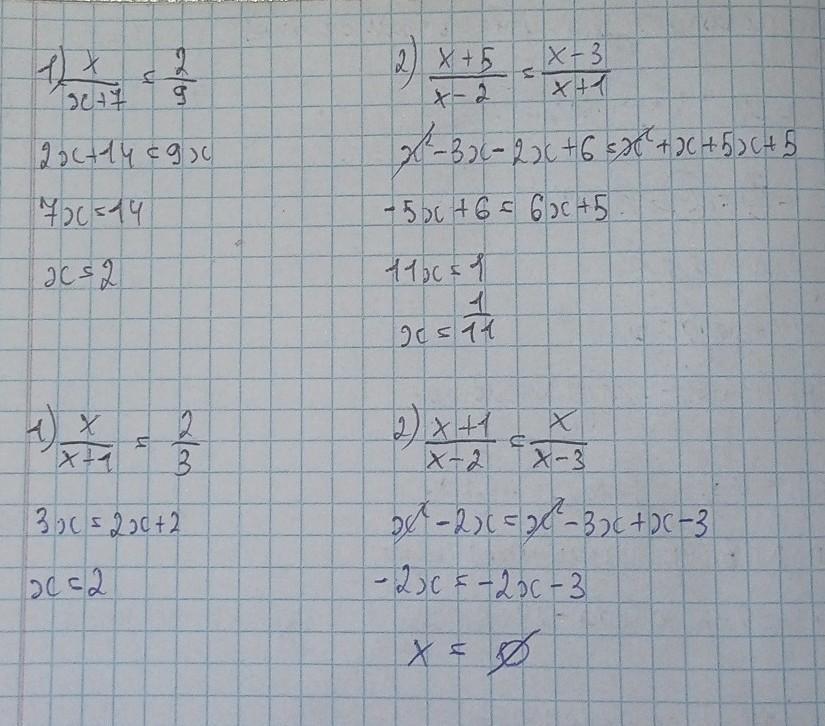 1) x/(x+7) = 2/9
2x+14=9x
7x=14
x=2
2) (x+5)/(x-2) = (x-3)/(x+1)
x²-3x-2x+6=x²+x+5x+5
-5x+6=6x+5
11x=1
x=1/11
1) x/(x+1) = 2/3
3x=2x+2
x=2
2) (x+1)/(x-2) = x/(x-3)
x²-2x=x²-3x+x-3
-2x=-2x-3
x=∅